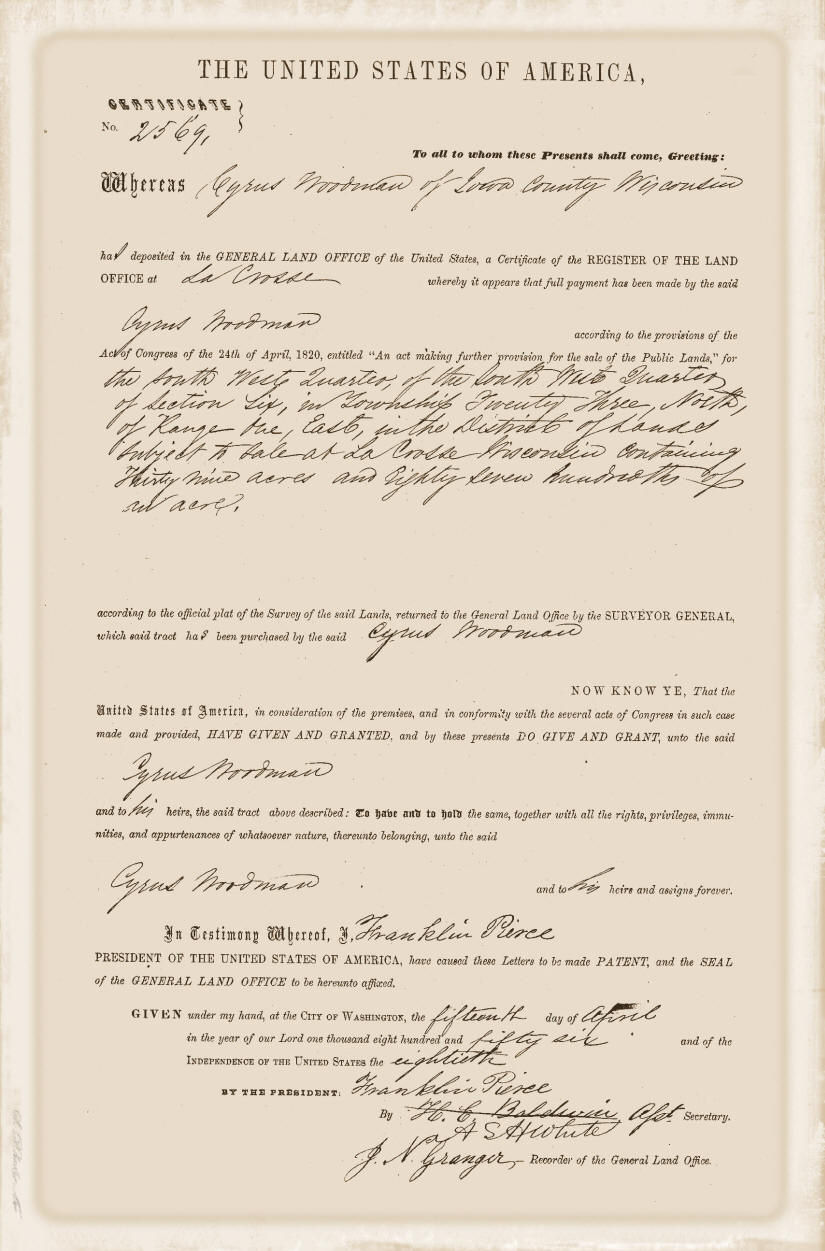 THE UNITED STATES OF AMERICA,
CERTIFICATE
No. 2569,
To all to whom these Presents shall come, Greeting:
Whereas Cyrus Woodman of Iowa County Wisconsin
has deposited in the GENERAL LAND OFFICE of the United States, a Certificate of the REGISTER OF THE LAND
OFFICE at La Crosse whereby it appears that full payment has been made by the said
Cyrus Woodman according to the provisions of the
Act of Congress of the 24th of April, 1820, entitled “An act making further provision for the sale of the Public Lands,” for
the South West Quarter, of the South West Quarter,
of Section Six, in Township Twenty Three, North,
of Range One, East, in the District of Lands
Subject to Sale at La Crosse Wisconsin containing
Thirty nine acres and Eighty seven hundredths of
an acre.
according to the official plat of the Survey of the said Lands, returned to the General Land Office by the SURVEYOR GENERAL,
which said tract has been purchased by the said Cyrus Woodman
NOW KNOW YE, That the
United States of America, in consideration of the premises, and in conformity with the several acts of Congress in such case
made and provided, HAVE GIVEN AND GRANTED, and by these presents DO GIVE AND GRANT, unto the said
Cyrus Woodman
and to his heirs, the said tract above described: To have and to hold the same, together with all the rights, privileges, immu-
nities, and appurtenances of whatsoever nature, thereunto belonging, unto the said
Cyrus Woodman and to his heirs and assigns forever.
In Testimony Whereof, I, Franklin Pierce
PRESIDENT OF THE UNITED STATES OF AMERICA, have caused these Letters to be made PATENT, and the SEAL
of the GENERAL LAND OFFICE to be hereunto affixed.
GIVEN under my hand, at the CITY OF WASHINGTON, the fifteenth day of April
in the year of our Lord one thousand eight hundred and fifty six and of the
INDEPENDENCE OF THE UNITED STATES the eightieth
BY THE PRESIDENT: Franklin Pierce
By H. E. Baldwin Asst. Secretary.
J. N. Granger, Recorder of the General Land Office.